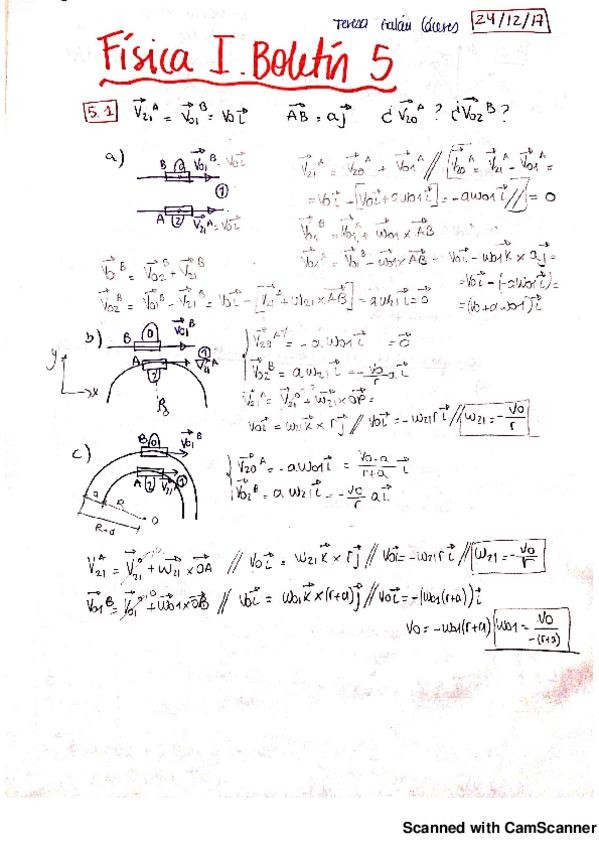 Teresa Galán Cáceres 24/12/17
Física I. Boletín 5
5.1 V⃗₂₁ᴬ = V⃗₀₁ᴮ = v₀i⃗ A⃗B = aj⃗ ¿V⃗₂₀ᴬ? ¿V⃗₀₂ᴮ?
a) B 0 V⃗₀₁ᴮ = v₀i⃗
1
A 2 V⃗₂₁ᴬ = v₀i⃗
V⃗₂₁ᴬ = V⃗₂₀ᴬ + V⃗₀₁ᴬ // V⃗₂₀ᴬ = V⃗₂₁ᴬ - V⃗₀₁ᴬ =
= v₀i⃗ - [v₀i⃗ + aω₀₁i⃗] = -aω₀₁i⃗ // = 0
V⃗₀₁ᴮ = V⃗₀₁ᴬ + ω₀₁ × A⃗B
V⃗₀₁ᴬ = V⃗₀₁ᴮ - ω₀₁ × A⃗B = v₀i⃗ - ω₀₁k⃗ × aj⃗ =
= v₀i⃗ - (-aω₀₁i⃗) =
= (v₀ + aω₀₁)i⃗
V⃗₀₁ᴮ = V⃗₀₂ᴮ + V⃗₂₁ᴮ
V⃗₀₂ᴮ = V⃗₀₁ᴮ - V⃗₂₁ᴮ = v₀i⃗ - [V⃗₂₁ᴬ + ω₂₁ × A⃗B] = aω₂₁i⃗ = 0⃗
b) B 0 V⃗₀₁ᴮ
y A 2 1 V⃗₂₁ᴬ
x
V⃗₂₀ᴬ = -aω₀₁i⃗ = 0⃗
V⃗₀₂ᴮ = aω₂₁i⃗ = -v₀/r ai⃗
V⃗₂₁ᴬ = V⃗₂₁ᴼ + ω⃗₂₁ × O⃗P =
v₀i⃗ = ω₂₁k⃗ × rj⃗ // v₀i⃗ = -ω₂₁ri⃗ // ω₂₁ = -v₀/r
c) B 0 V⃗₀₁ᴮ
A 2 V⃗₂₁ 1
a R
R+a O
V⃗₂₀ᴬ = -aω₀₁i⃗ = v₀·a/r+a i⃗
V⃗₀₂ᴮ = aω₂₁i⃗ = -v₀/r ai⃗
V⃗₂₁ᴬ = V⃗₂₁ᴼ + ω⃗₂₁ × O⃗A // v₀i⃗ = ω₂₁k⃗ × rj⃗ // v₀i⃗ = -ω₂₁ri⃗ // ω₂₁ = -v₀/r
V⃗₀₁ᴮ = V⃗₀₁ᴼ + ω⃗₀₁ × O⃗B // v₀i⃗ = ω₀₁k⃗ × (r+a)j⃗ // v₀i⃗ = -(ω₀₁(r+a))i⃗
v₀ = -ω₀₁(r+a) ω₀₁ = v₀/-(r+a)
Scanned with CamScanner